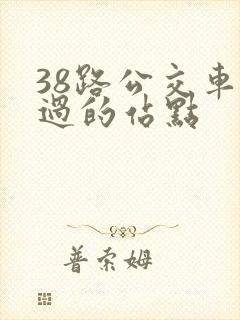 38路公交車
過的佔點
普索姆